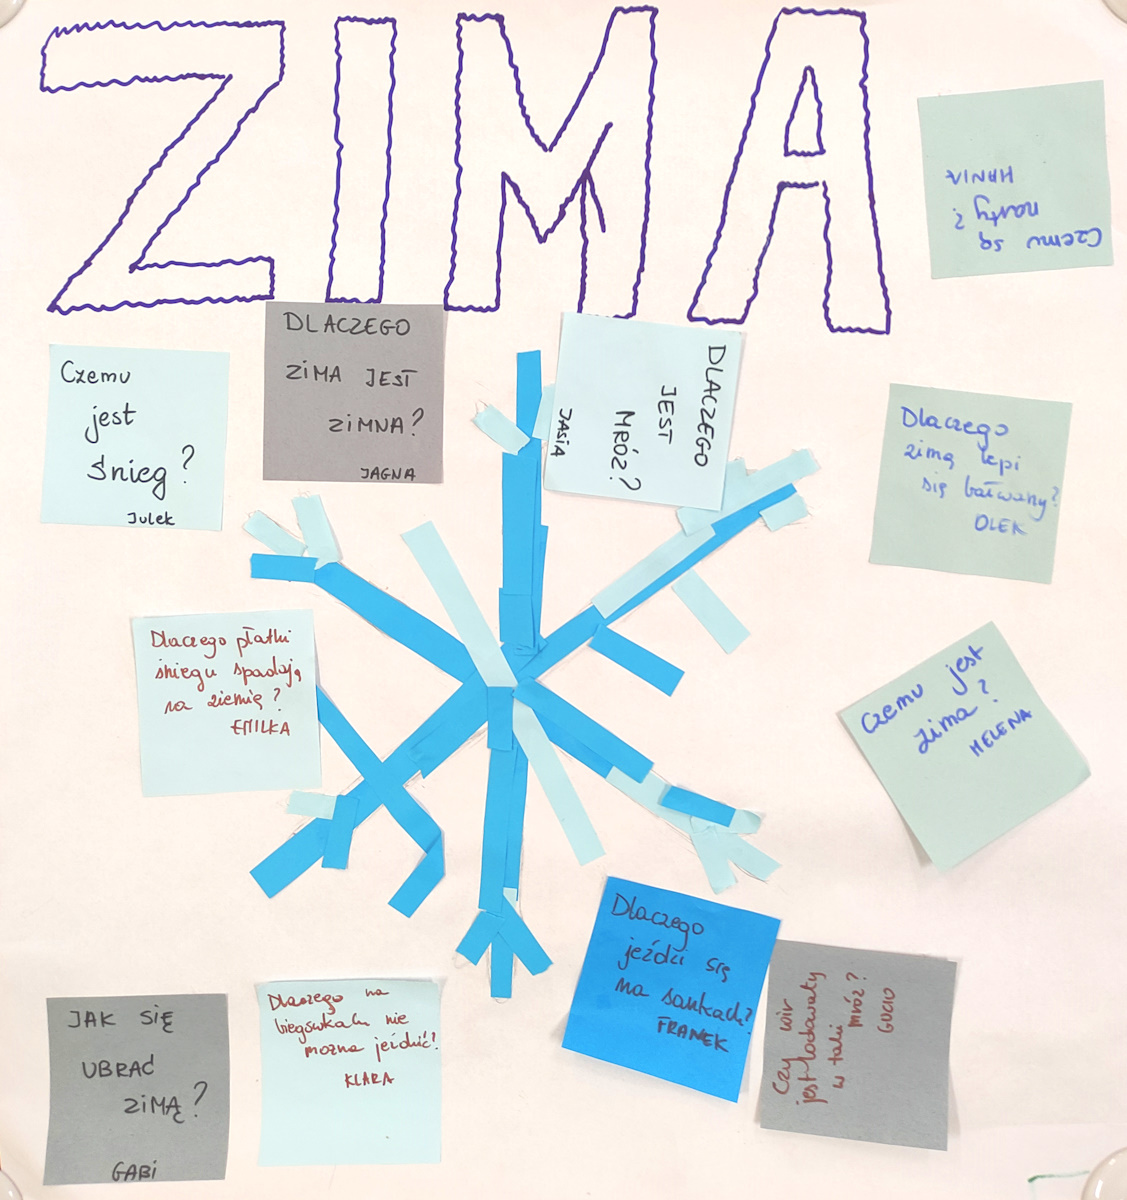 ZIMA
Czemu są
narty?
HANIA
Czemu
jest
śnieg?
Julek
DLACZEGO
ZIMA JEST
ZIMNA?
JAGNA
DLACZEGO
JEST
MRÓZ?
JASIA
Dlaczego
zimą lepi
się bałwany?
OLEK
Dlaczego płatki
śniegu spadają
na ziemię?
EMILKA
Czemu jest
zima?
HELENA
Dlaczego
jeździ się
na sankach?
FRANEK
Czy wir
jest lodowaty
w taki
mróz?
GUCIO
JAK SIĘ
UBRAĆ
ZIMĄ?
GABI
Dlaczego na
biegówkach nie
można jeździć?
KLARA